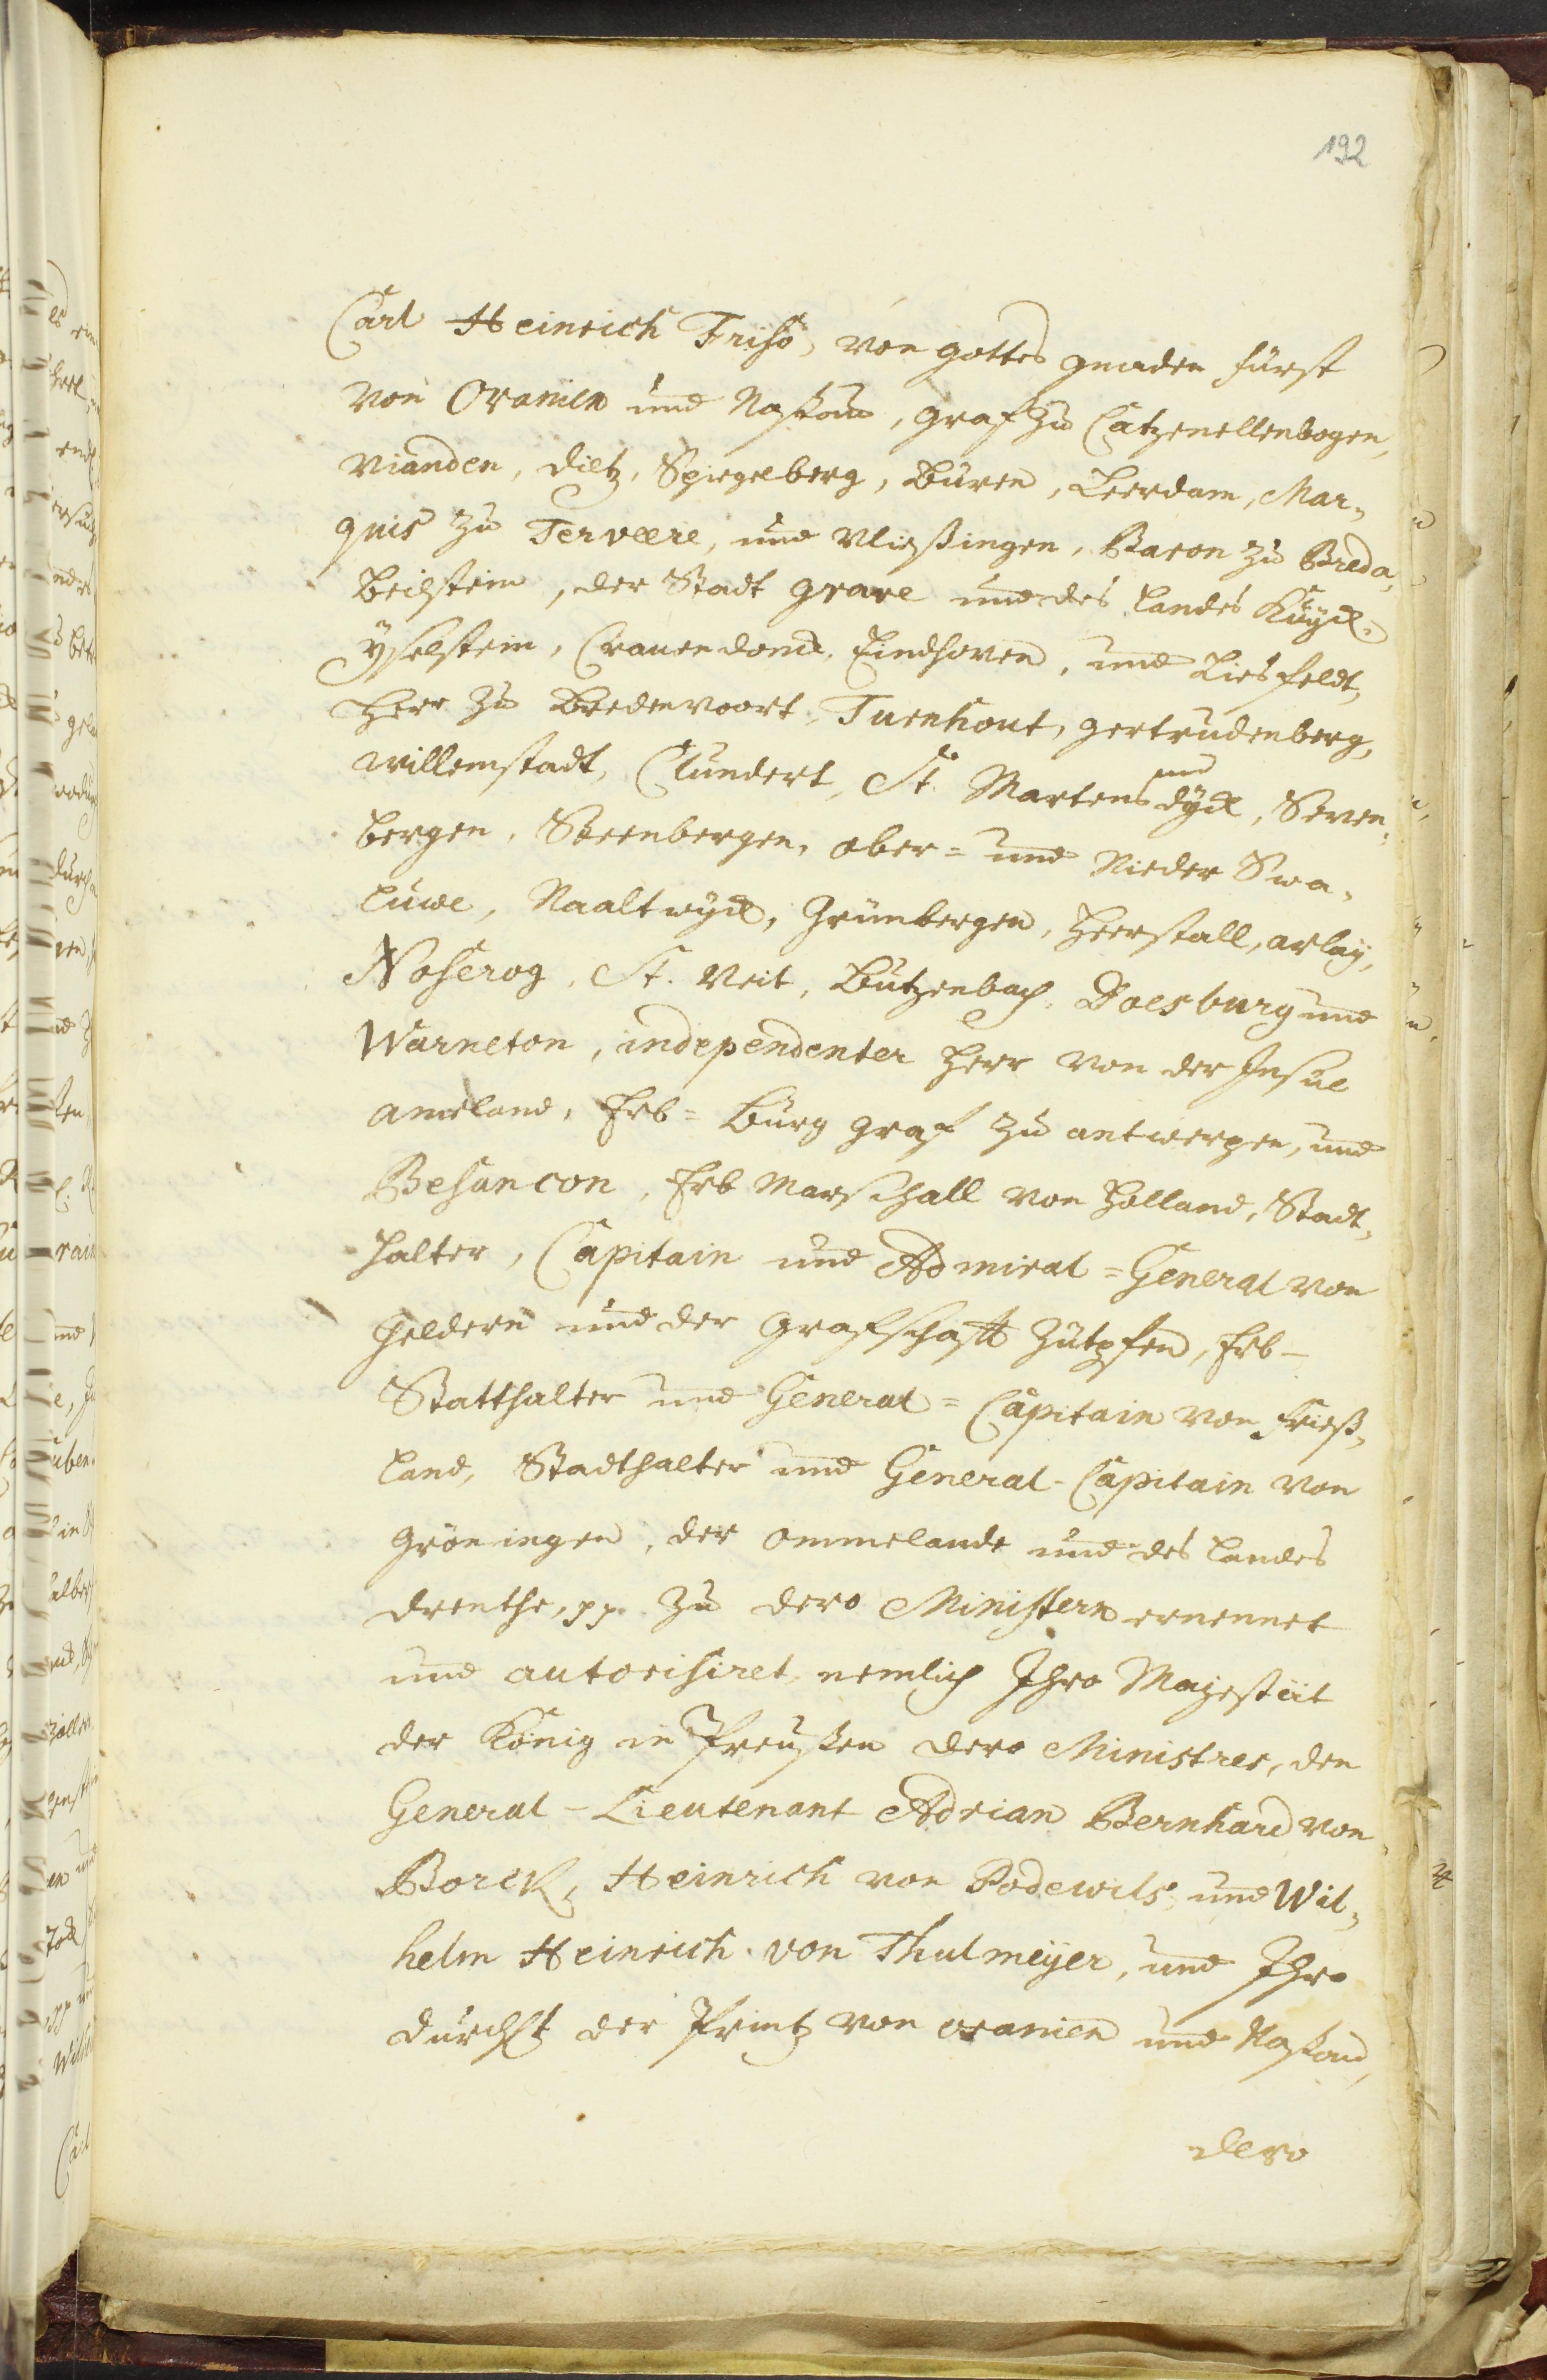 192
Carl Heinrich Friso, von Gottes gnaden Fürst
von Oranien und Naßau, Graf zu Catzenellenbogen,
Vianden, Dietz, Spiegelberg, Büren, Leerdam, Mar„
quis zu Terveere, und Vließingen, Baron zu Breda,
Beilstein, der Stadt Grave und des Landes Kuyck,
Ysselstein, Cranendonck, Eindhoven, und Liesfeldt,
Herr zu Bredenvoort, Turnhout, Gertrudenberg,
Willemstadt, Clundert, St. Martensdyck, und Seven„
bergen, Steenbergen, Ober= und Nieder Swa„
luwe, Naaltwyck, Grimbergen, Herstall, Arlay,
Noserog, St. Veit, Butzenbach, Doesburg und
Warneton, independenter Herr von der Insul
Ameland, Erb= Burg Graf zu Antwerpen, und
Besancon, Erb Marschall von Holland, Stadt„
halter, Capitain und Admiral=General von
Geldern und der Grafschafft Zütphen, Erb-
Statthalter und General=Capitain von Frieß„
land, Stadthalter und General-Capitain von
Gröningen, der Ommelande und des Landes
Drenthe, pp. zu dero Ministern ernennet
und autorisiret, nemlich Ihro Majestät
der König in Preußen dero Ministres, den
General-Lieutenant Adrian Bernhard von
Borck, Heinrich von Podewils, und Wil„
helm Heinrich von Thulmeyer, und Ihro
Durchlt der Printz von Oranien und Naßau,
dero